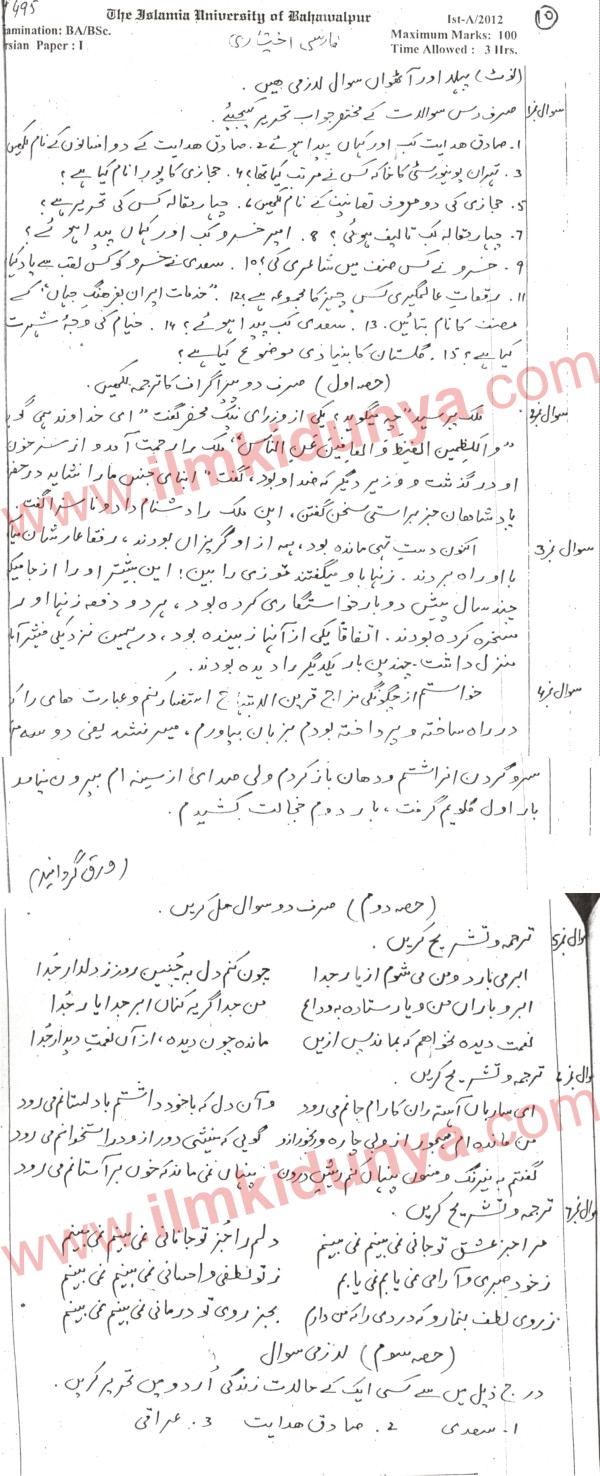 1495
The Islamia University of Bahawalpur
1st-A/2012
10
amination: BA/BSc.
فارسی اختیاری
Maximum Marks: 100
rsian Paper : I
Time Allowed : 3 Hrs.
(نوٹ) پہلا اور آٹھواں سوال لازمی ہیں۔
سوال نمبر1 صرف دس سوالات کے مختصر جواب تحریر کیجیئے۔
1۔ صادق ھدایت کب اور کہاں پیدا ہوئے 2۔ صادق ھدایت کے دو افسانوں کے نام لکھیں
3۔ تہران یونیورسٹی کا خاکہ کس نے مرتب کیا تھا؟ 4۔ حجازی کا پورا نام کیا ہے؟
5۔ حجازی کی دو معروف تصانیف کے نام لکھیں 6۔ چہار مقالہ کس کی تحریر ہے؟
7۔ چہار مقالہ کب تالیف ہوئی؟ 8۔ امیر خسرو کب اور کہاں پیدا ہوئے؟
9۔ خسرو نے کس صنف میں شاعری کی؟ 10۔ سعدی نے خسرو کو کس لقب سے یاد کیا
11۔ رقعات عالمگیری کس چیز کا مجموعہ ہے؟ 12۔ "خدمات ایران بفرھنگ جہان" کے
مصنف کا نام بتائیں۔ 13۔ سعدی کب پیدا ہوئے؟ 14۔ خیام کی وجۂ شہرت
کیا ہے؟ 15۔ گلستان کا بنیادی موضوع کیا ہے؟
(حصہ اول) صرف دو پیراگراف کا ترجمہ لکھیں۔
سوال نمبر2 ملک پرسید "چہ میگوید؟ یکی از وزرای نیک محضر گفت "ای خداوند ہمی گو
"والکظمین الغیظ والعافین عن الناس" ملک را رحمت آمد و از سر خون
او در گذشت و وزیر دیگر کہ ضد او بود، گفت "ابنای جنس ما را نشاید در حضر
پادشاھان جز براستی سخن گفتن، این ملک را دشنام داد و ناسزا گفت
سوال نمبر3 اکنون دست تہی ماندہ بود، ہمہ از او گریزاں بودند، رفقا عارشان میآ
با او راہ بروند۔ زنہا باو میگفتند قوزی را ببین! این بیشتر او را از جا میک
چند سال پیش دو بار خواستگاری کردہ بود، ہر دو دفعہ زنہا او را
مسخرہ کردہ بودند۔ اتفاقاً یکی از آنہا زبیندہ بود، در ہمین نزدیکی فیشر آبا
منزل داشت۔ چندین بار یکدیگر را دیدہ بودند
سوال نمبر4 خواستم از چگونگی مزاج قرین الابتہاج استفسار کنم و عبارت ھای را ک
در راہ ساختہ و پرداختہ بودم بزبان بیاورم، میسر نشد یعنی دو سہ
سرو گردن افراشتم و دھان باز کردم ولی صدائ از سینہ ام بیرون نیامد
بار اول گلویم گرفت، بار دوم خجالت کشیدم۔
(ورق گردانید)
(حصہ دوم) صرف دو سوال حل کریں۔
وال نمبر5 ترجمہ و تشریح کریں۔
ابر می بارد و من می شوم از یار جدا چون کنم دل بہ چنین روز ز دلدار جدا
ابر و باراں من و یار ستادہ بہ وداع من جدا گریہ کناں ابر جدا یار جدا
نعمت دیدہ نخواھم کہ بماند پس ازین ماندہ چون دیدہ، از آن نعمت دیدار جدا
وال نمبر6 ترجمہ و تشریح کریں۔
ای ساربان آھستہ ران کارام جانم می رود وآن دل کہ با خود داشتم با دلستانم می رود
من ماندہ ام مہجور از وی بیچارہ و رنجور از او گویی کہ نیشی دور از و در استخوانم می رود
گفتم بہ نیرنگ و فسون پنہان کنم ریش درون پنہاں نمی ماند کہ خوں بر آستانم می رود
وال نمبر7 ترجمہ و تشریح کریں۔
مرا جز عشق تو جانی نمی بینم نمی بینم دلم را جز تو جانانی نمی بینم نمی بینم
ز خود صبری و آرامی نمی یابم نمی یابم ز تو لطفی و احسانی نمی بینم نمی بینم
ز روی لطف بنما رو کہ دردی را کہ من دارم بجز روی تو درمانی نمی بینم نمی بینم
(حصہ سوم) لازمی سوال
درج ذیل میں سے کسی ایک کے حالات زندگی اُردو میں تحریر کریں۔
1۔ سعدی 2۔ صادق ھدایت 3۔ عراقی
www.ilmkidunya.com
www.ilmkidunya.com